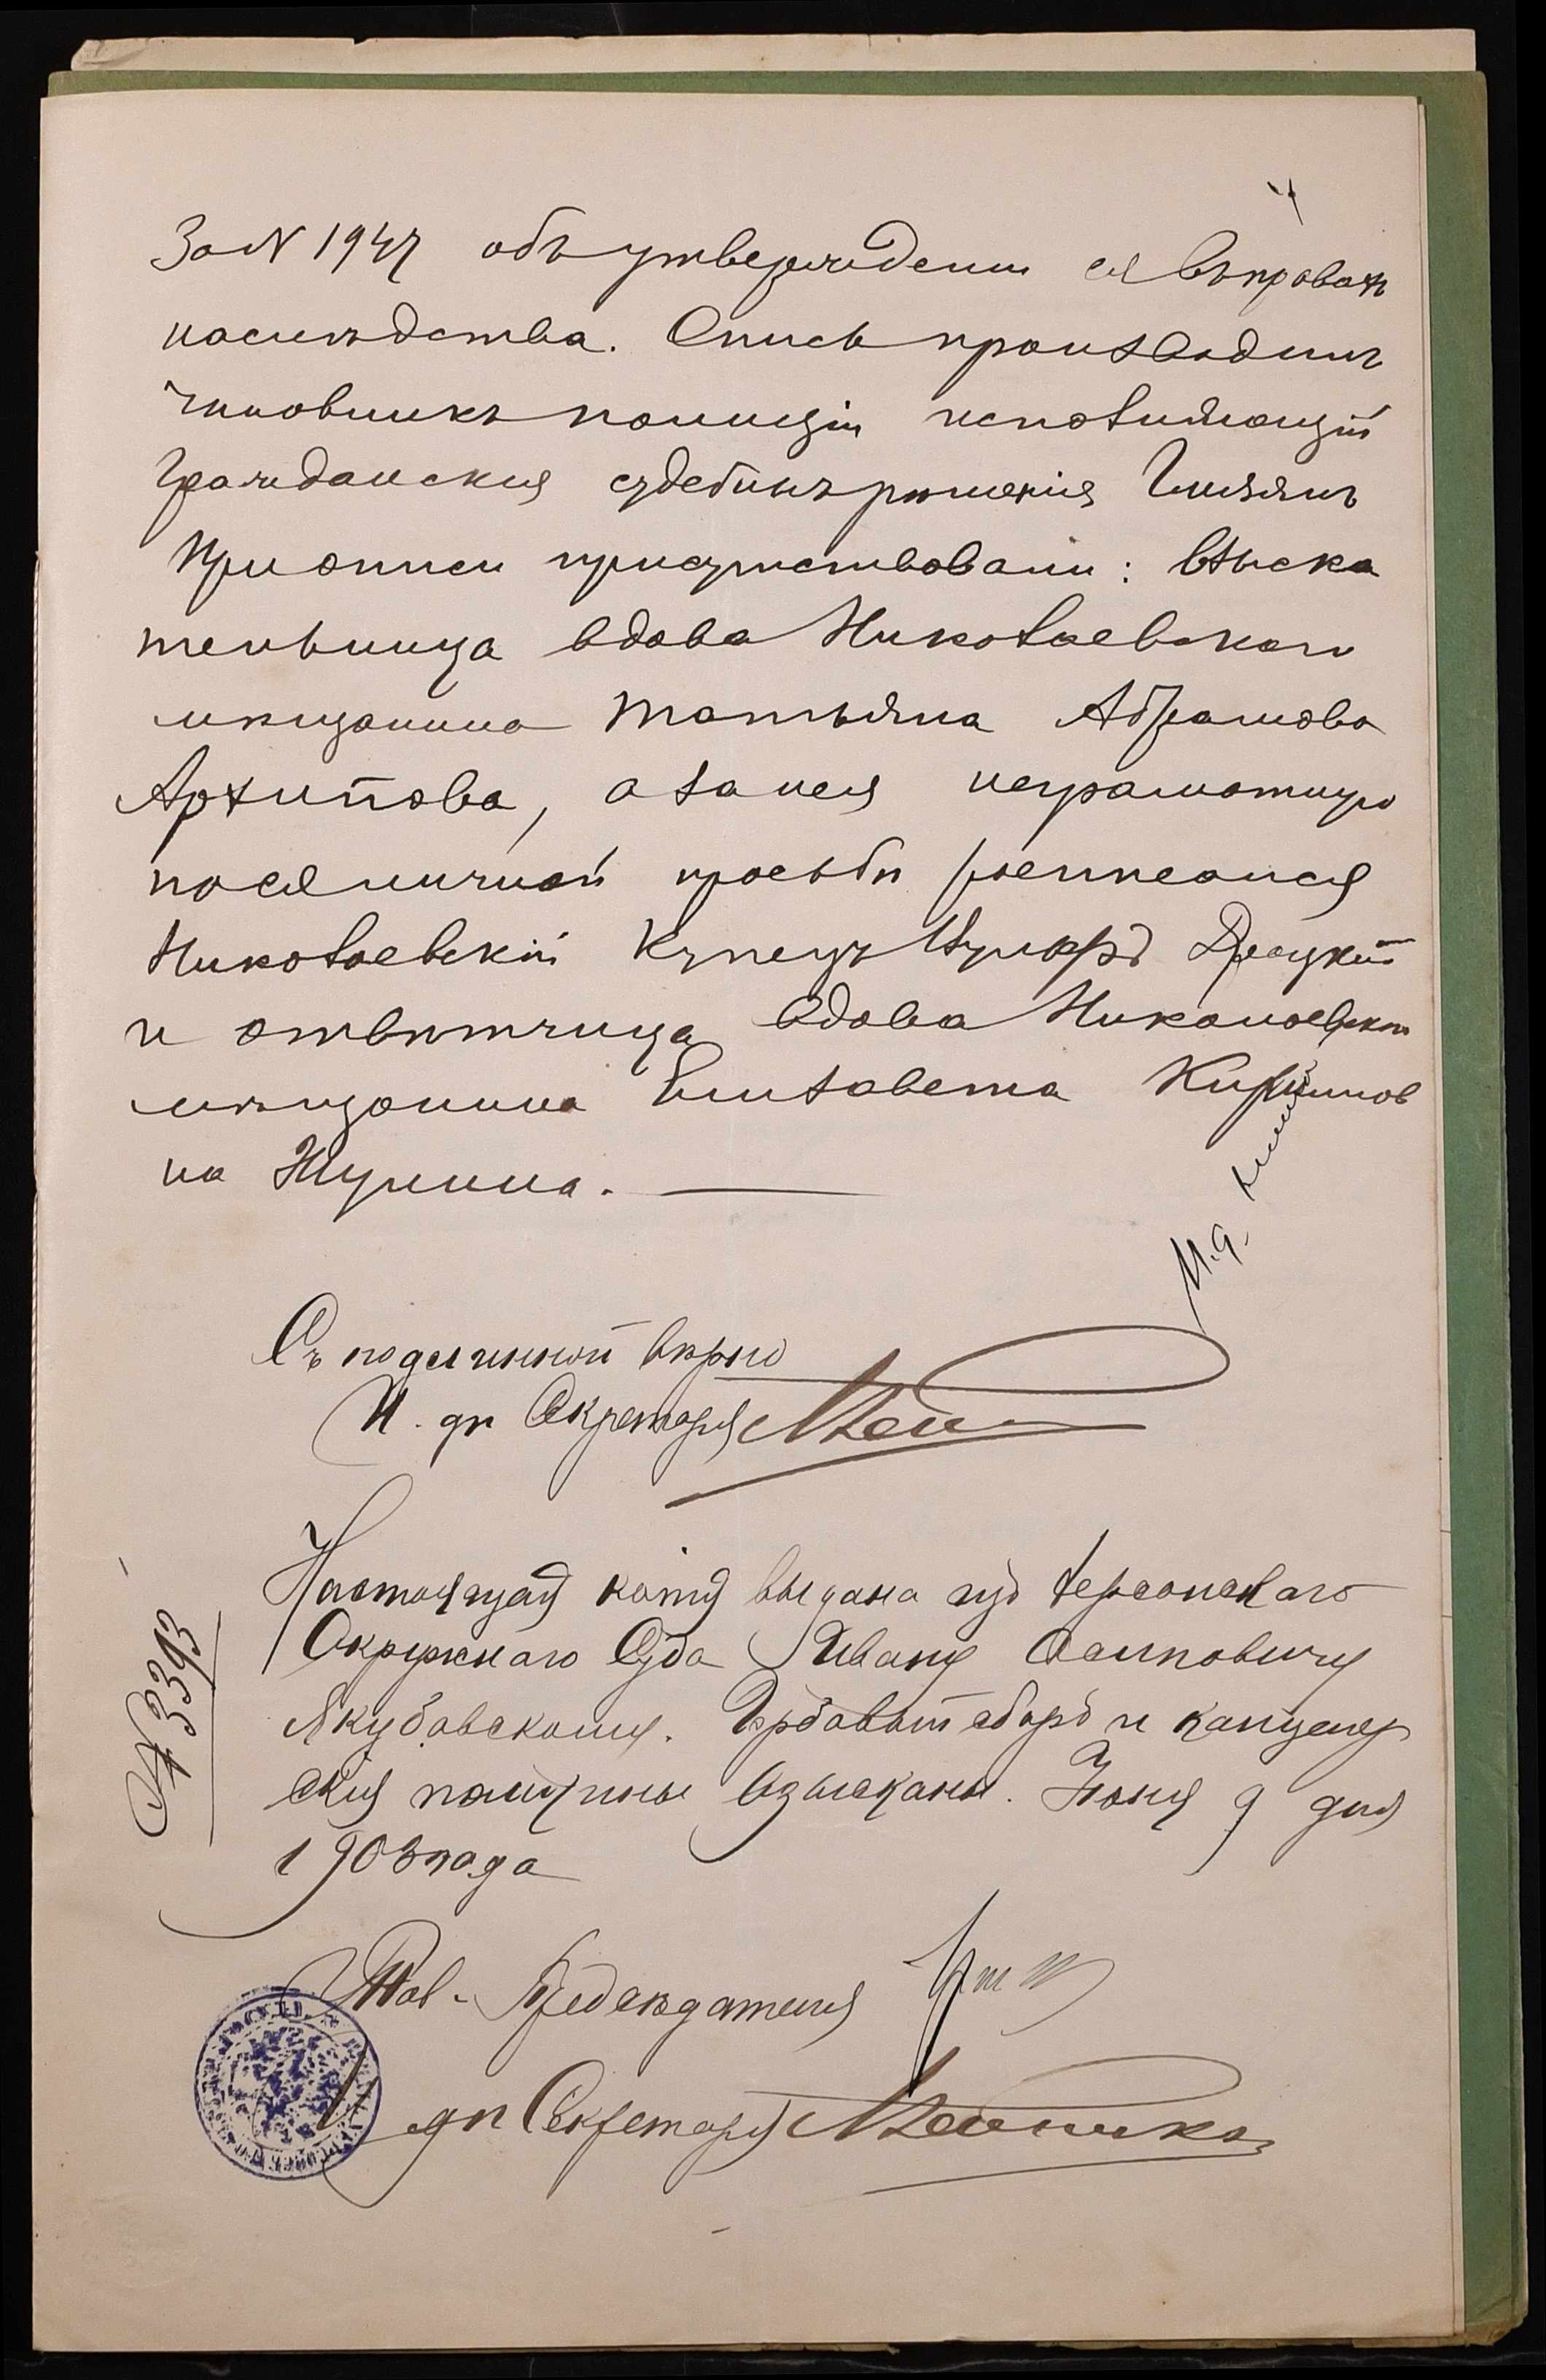 4
За N 1947 объ утверждении ея въ правахъ
наслѣдства. Опись производилъ
Чиновникъ полиціи исполняющій
Гражданскія судебныя рѣшенія
При описи присутствовали: взыска
тельница вдова Николаевскаго
мѣщанина Татьяна Абрамова
Архипова, а за нея неграмотную
по ея личной просьбѣ росписался
Николаевскій Купецъ Драцкій
и отвѣтчица вдова Николаевскаго
мѣщанина Елизавета
на Шулина.
Съ подлинной вѣрно
И. дѣ Секретаря
Настоящая копія выдана изъ Херсонскаго
Окружнаго Суда Ивану Осиповичу
Якубовскому. Гербовый сборъ и канцеляр
скія пошлины взысканы. Іюня 9 дня
1903 года
N 3393
Тов. Предсѣдателя
И дѣ Секретаря